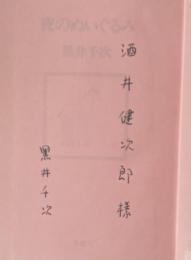 夜のぬいぐるみ
黒井千次
酒井健次郎様
黒井千次